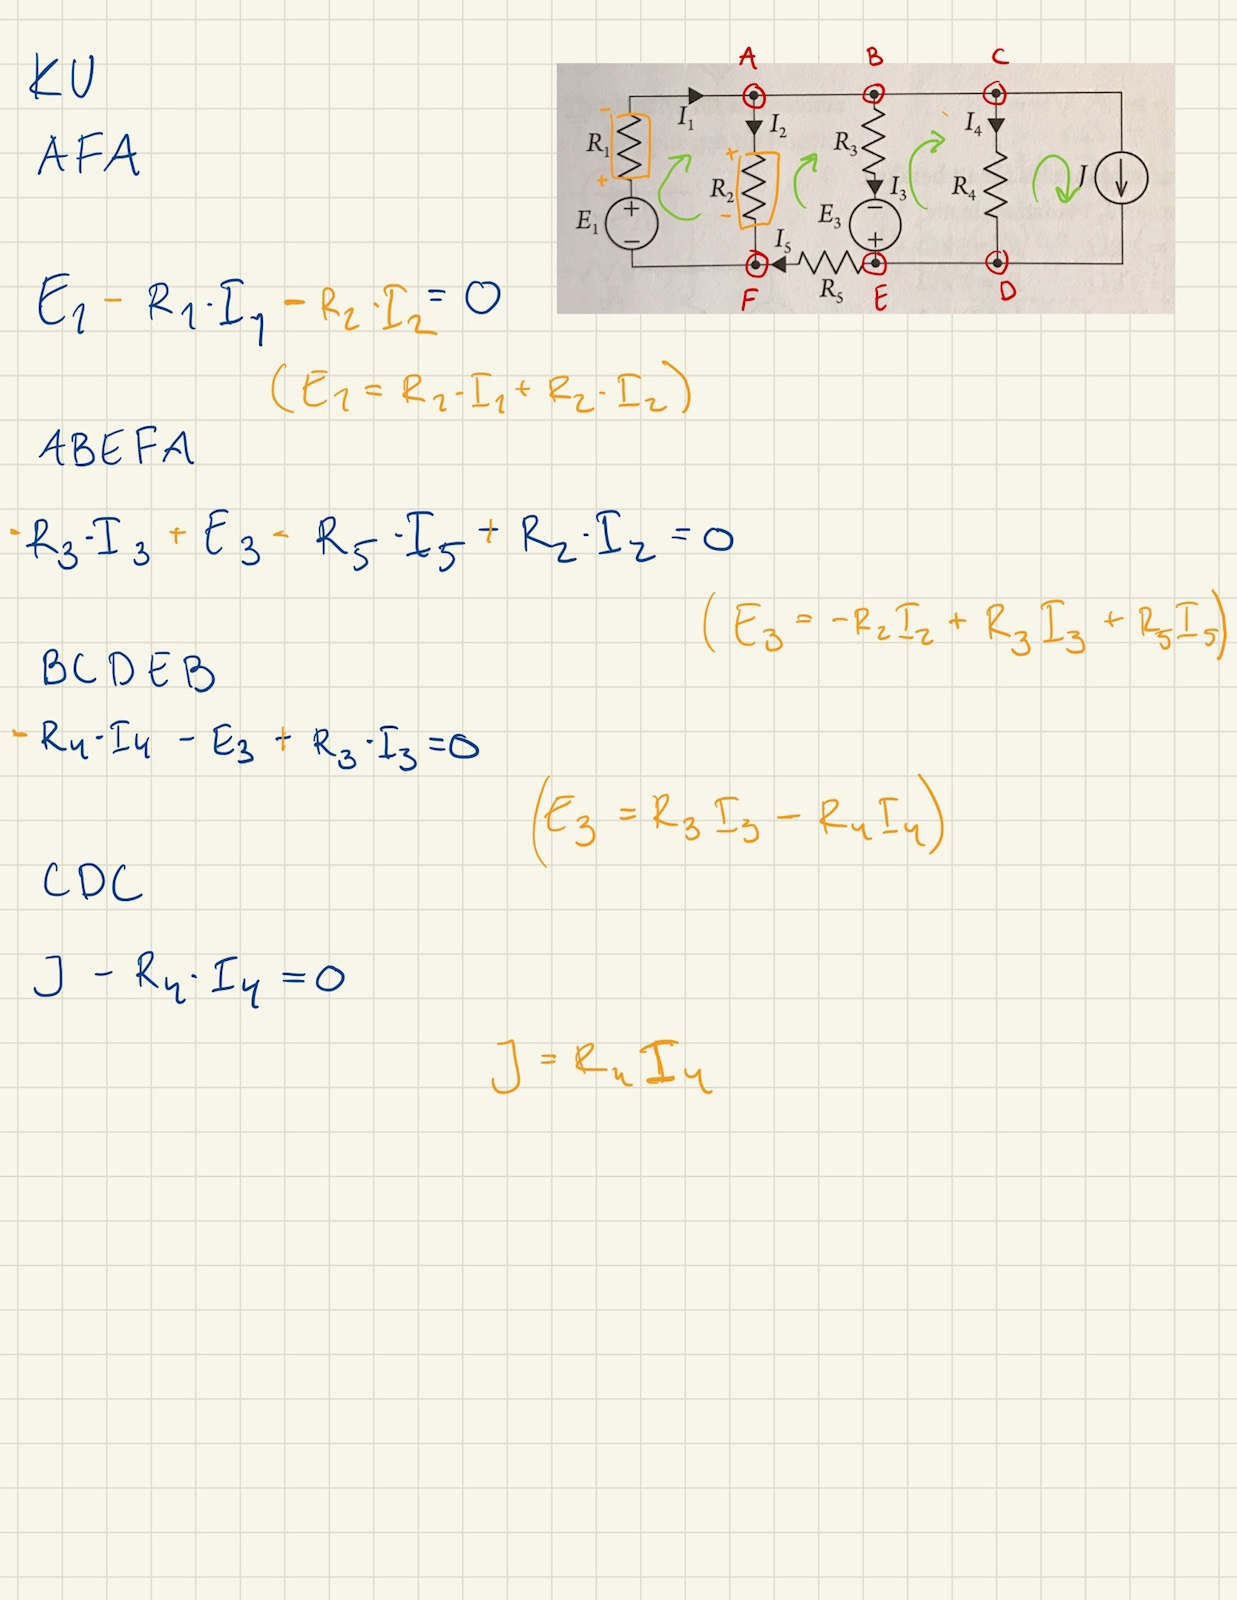 KU
AFA
A B C
I₁ I₂ I₄
R₁ R₂ R₃ I₃ R₄ J
E₁ E₃
I₅
R₅
F E D
E₁ - R₁·I₁ - R₂·I₂ = 0
(E₁ = R₁·I₁ + R₂·I₂)
ABEFA
-R₃·I₃ + E₃ - R₅·I₅ + R₂·I₂ = 0
(E₃ = -R₂I₂ + R₃I₃ + R₅I₅)
BCDEB
- R₄·I₄ - E₃ + R₃·I₃ = 0
(E₃ = R₃I₃ - R₄I₄)
CDC
J - R₄·I₄ = 0
J = R₄I₄